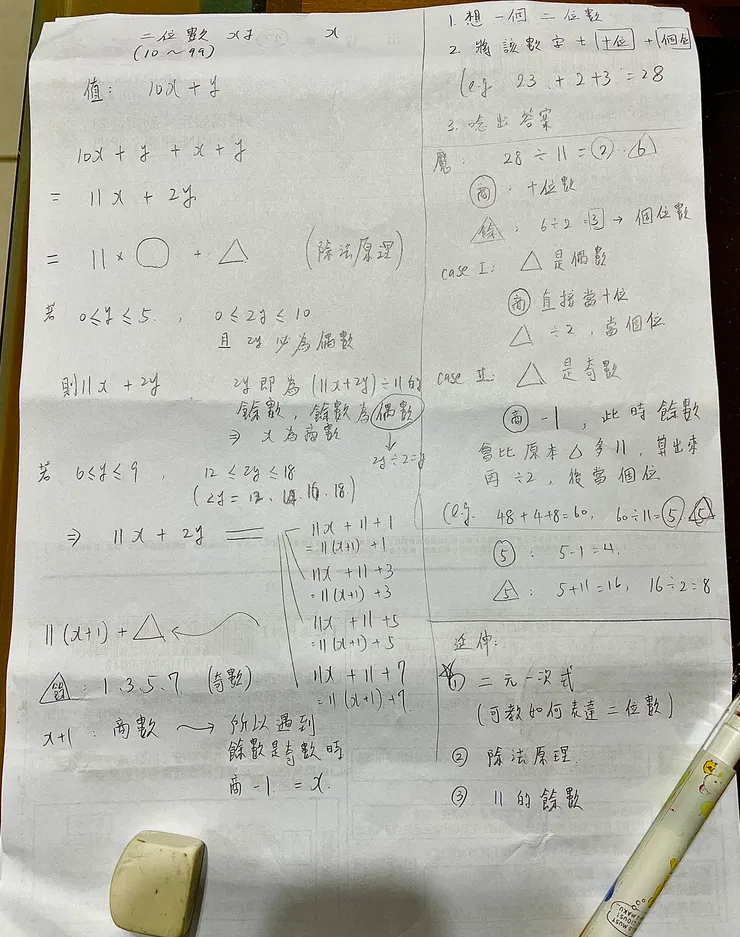 二位數 xy x
(10～99)
值: 10x + y
10x + y + x + y
= 11x + 2y
= 11 × ○ + △ (除法原理)
若 0≤y≤5, 0≤2y≤10
且 2y 必為偶數
則11x + 2y 2y 即為 (11x+2y)÷11的
餘數, 餘數為偶數
⇒ x 為商數
2y÷2=y
若 6≤y≤9, 12≤2y≤18
(2y = 12、14、16、18.)
⇒ 11x + 2y
11x + 11 + 1
= 11(x+1) + 1
11x + 11 + 3
= 11(x+1) + 3
11x + 11 + 5
= 11(x+1) + 5
11x + 11 + 7
= 11(x+1) + 7
11(x+1) + △
餘: 1.3.5.7 (奇數)
x+1: 商數 → 所以遇到
餘數是奇數時
商-1 = x.
1. 想一個二位數
2. 將該數字 + 十位 + 個位
(e.g. 23 + 2 + 3 = 28
3. 唸出答案
28 ÷ 11 = 2 … 6
商: 十位數
餘: 6÷2 = 3 → 個位數
case I: △ 是偶數
商 直接當十位
△ ÷2, 當個位
case II: △ 是奇數
商 -1, 此時餘數
會比原本△多11, 算出來
再÷2, 後當個位
(e.g. 48+4+8=60, 60÷11=5 5
5: 5-1=4.
5: 5+11=16, 16÷2=8
延伸:
① 二元一次式
(可教如何表達二位數)
② 除法原理.
③ 11 的餘數